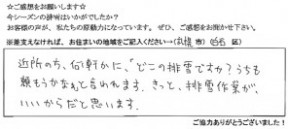 ☆ご感想をお願いします☆
今シーズンの排雪はいかがでしたか?
お客様の声が、私たちの原動力になっています。ぜひ、ご感想をお聞かせ下さい。
※差支えなければ、お住まいの地域をご記入ください→(札幌市)(西区)
近所の方、何軒かに、「どこの排雪ですか?うちも
頼もうかなぁ」と言われます。きっと、排雪作業が、
いいからだと思います。
ご協力ありがとうございました!